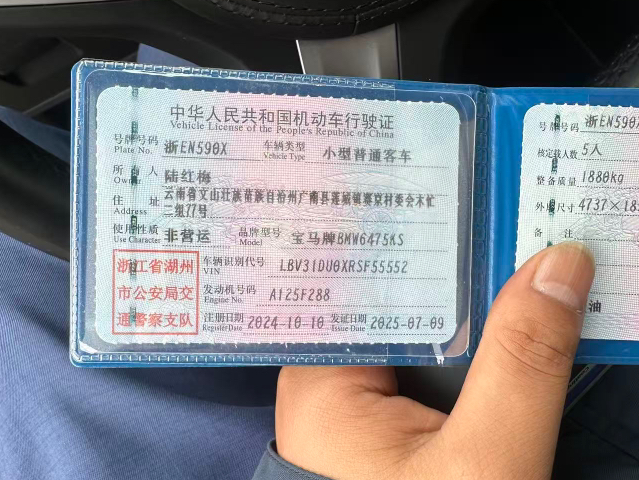 中华人民共和国机动车行驶证
Vehicle License of the People's Republic of China
号牌号码 浙EN590X 车辆类型 小型普通客车
Plate No. Vehicle Type
所有人 陆红梅
Owner
住址 云南省文山壮族苗族自治州广南县莲城镇寨京村委会木忙
Address 二组77号
使用性质 非营运 品牌型号 宝马牌BMW6475KS
Use Character Model
浙江省湖州
市公安局交
通警察支队
车辆识别代号 LBV31DU0XRSF55552
VIN
发动机号码 A125F288
Engine No.
注册日期 2024-10-10 发证日期 2025-07-09
Register Date Issue Date
号牌号码 浙EN590
核定载人数 5人
整备质量 1880kg
外廓尺寸 4737×18
备注
油